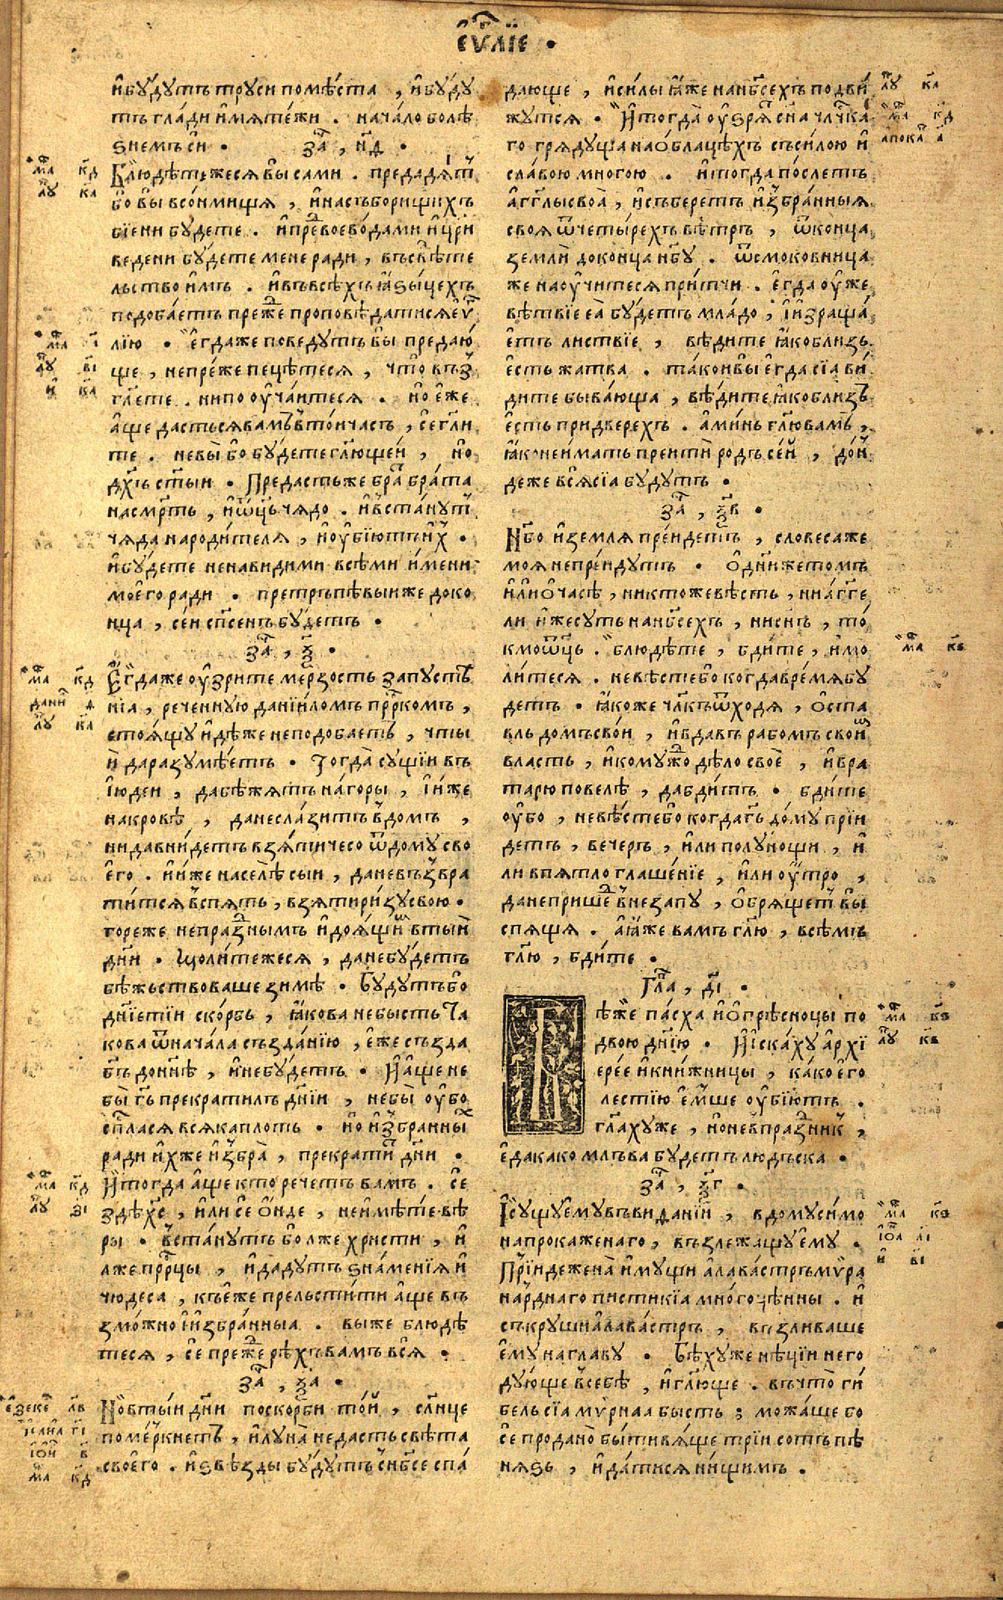 єѵⷢ҇лїе .
и҆бу́дутъ труси помѣ́ста , и҆буду
тъ гла́ди и҆мяте́жи . нача́ло болѣ́
ѕнемъ си . заⷱ҇ , н҃д .
Блюдѣ́тежеся вы сами . предадя́тⸯ
бо вы всонмищя , и҆насъборищихъ
бїени бу́дете . и҆превоево́дами и҆цр҃и
ведени бу́дете мене ради , въсвѣ́те
льство и҆мъ . и҆въвсѣ́хъ ꙗ҆зы́цехъ
подоба́етъ преже проповѣ́датися є҆ѵⷢ҇
лїю . Є҆гдаже поведутъ вы преда́ю
ще , непре́же пецѣ́теся , что̀ възⸯ
гл҃ете . нипо оуча́итеся . но є҆́же
а҆́ще дастьсявамъ втои часъ , се гл҃и
те . невы́ бо бу́дете гл҃ющеи , но
дх҃ъ ст҃ыи . Предастьже братⸯ бра́та
насмр҃ть , и҆ѿц҃ь чядо . и҆вⸯста́нутⸯ
чяда народи́теля , и҆оубїю́тъ и҆̀хⸯ .
и҆бу́дете ненавидими всѣ́ми и҆́мени
моего ради . претръпѣвыи же доко
нца , се́и спс҃енъ бу́детъ .
заⷱ҇ , ѯ҃ .
Є҆гдаже оу҆́зрите ме́рзость запустѣ
нїа , рече́нную данїи́ломъ прⷪ҇ркомъ ,
стоя́щу и҆дѣ́же неподоба́етъ , чты́и
да разумѣ́етъ . Тогда̀ су́щїи въ
І҆юдеи , дабѣжя́тъ на́горы , І҆и́же
накровѣ , данесла́зитъ вдомъ ,
нидавни́детъ взя́ти чесо ѿдому сво
его . и҆и́же населѣ̀ сыи , даневъзⸯвра
ти́тся вспять , взяти ри́зу свою .
горе же непразⸯнымъ и҆доя́щиⷨ втыѝ
дн҃и . Моли́тежеся , данебу́детъ
бѣ́жьство ваше зимѣ̀ . Бу́дутъ бо
дн҃їетїи ско́рбь , ꙗ҆́кова небысть Та
кова ѿнача́ла създа́нїю , є҆́же създа
бг҃ъ донн҃ѣ , и҆небу́детъ . И҆а҆́ще не
бы̀ гь҃ прекратилъ дн҃їи , небы̀ оу҆́бо
спс҃лася всякаплоть . но и҆збра́нныⷯ
ради и҆́хже и҆збра̀ , прекратѝ дн҃и .
И҆тогда а҆́ще кто рече́тъ вамъ . се
зⸯдѣ̀ хс҃ , и҆́ли се ѻ҆́нде , неимѣ́те вѣ́
ры . вⸯста́нутъ бо лже христи , и҆
лже прⷪ҇рцы , и҆дадутъ ѕна́менїя и҆
чюдеса , къе҆́же прельсти́ти а҆́ще въ
змо́жно и҆и҆збра́нныа . вы же блюдѣ́
теся , се преже рѣхъ вамъ вся .
заⷱ҇ , ѯ҃а .
Новты́и дн҃и поскорби то́й , сл҃нце
поме́ркнетъ , и҆луна̀ недасть свѣ́та
своего . и҆ѕвѣ́зды бу́дутъ сн҃бсе спа́
дающе , и҆силы ꙗ҆́же нанб҃сехъ подви́
жутся . И҆тогда̀ оу҆зря́т сн҃а чл҃чка
го гряду́ща наѻ҆́блацѣхъ съсилою и҆
славою многою . и҆тогда послетъ
а҆́гг҃лы своа̀ , и҆събере́тъ и҆збра́нныя
своя ѿчеты́рехъ вѣ́тръ , ѿконца
земля̀ доконца нб҃у . ѿсмоковница
же нау҆чи́теся при́тчи . є҆гда оу҆же
вѣ́твїе є҆а̀ бу́детъ мла́до , І҆и҆зраща
етъ листвїе , вѣ́дите ꙗ҆коблизь
є҆сть жатва . та́кои вы є҆гда сїа ви́
дите быва́юща , вѣ́дите ꙗ҆коблизь
є҆сть придверехъ . а҆ми́нь гл҃ю вамъ ,
ꙗ҆ко неимать преити ро́дъ се́й , до́и
деже вся сїа бу́дутъ .
заⷱ҇ , ѯ҃в .
Нб҃о и҆земля пре́идетъ , словеса же
моя непре́идутъ . Ѻ҆дн҃и же томъ
и҆́ли ѻ҆часѣ̀ , никтоже вѣсть , ниа҆гг҃е
ли и҆́же суть нанб҃сехъ , нисн҃ъ , то́
кмо ѿц҃ь . блюдѣ́те , бди́те , и҆мо
ли́теся . невѣ́сте бо когда вре́мя бу
детъ . ꙗ҆́коже чл҃къ ѿходя , ѻ҆ста
вль домъ свои , и҆вда́въ рабомъ своиⷨ
власть , и҆комуждо дѣло своѐ , и҆вра
тарю повелѣ̀ , дабдитъ . бди́те
оубо , невѣ́сте бо когда гь҃ до́му прїи
детъ , вечеръ , и҆ли полунощи , и҆
ли впѣтлоглаше́нїе , и҆́ли оу҆́тро ,
данепришеⷣ внеза́пу , ѻ҆бря́щет вы
спя́щя . а҆ꙗ҆́же вамъ гл҃ю , всѣмъ
гл҃ю , бди́те .
Глаⷡ҇ , д҃і .
Бѣ́же па́сха и҆ѻ҆прѣсно́цы по
двою дн҃їю . И҆иска́ху а҆рхї
ере́е и҆кни́жницы , ка́ко его
лестїю є҆́мше оу҆бїю́тъ .
гл҃ахуже , но невпразникⸯ ,
є҆дакако млъва бу́детъ людьска .
заⷱ҇ , ѯ҃г .
І҆сущу ему въвида́нїи , вдому симо
напрокаженаго , възлежащу є҆му .
Прїи́де жена̀ и҆му́щи алава́стръ мѵ́ра
на́рднаго пистикїа много цѣ́нны . и҆
съкруши а҆лава́стръ , възливаше
є҆му на главу̀ . Бѣ́хуже нѣ́цїи него
ду́юще всебѣ , и҆гл҃юще . въчто ги́
бель сїа мѵрнаа бысть ; можа́ще бо
се продано быти вя́ще трїи сотъ пѣ
нязь , и҆да́тися ни́щимъ .